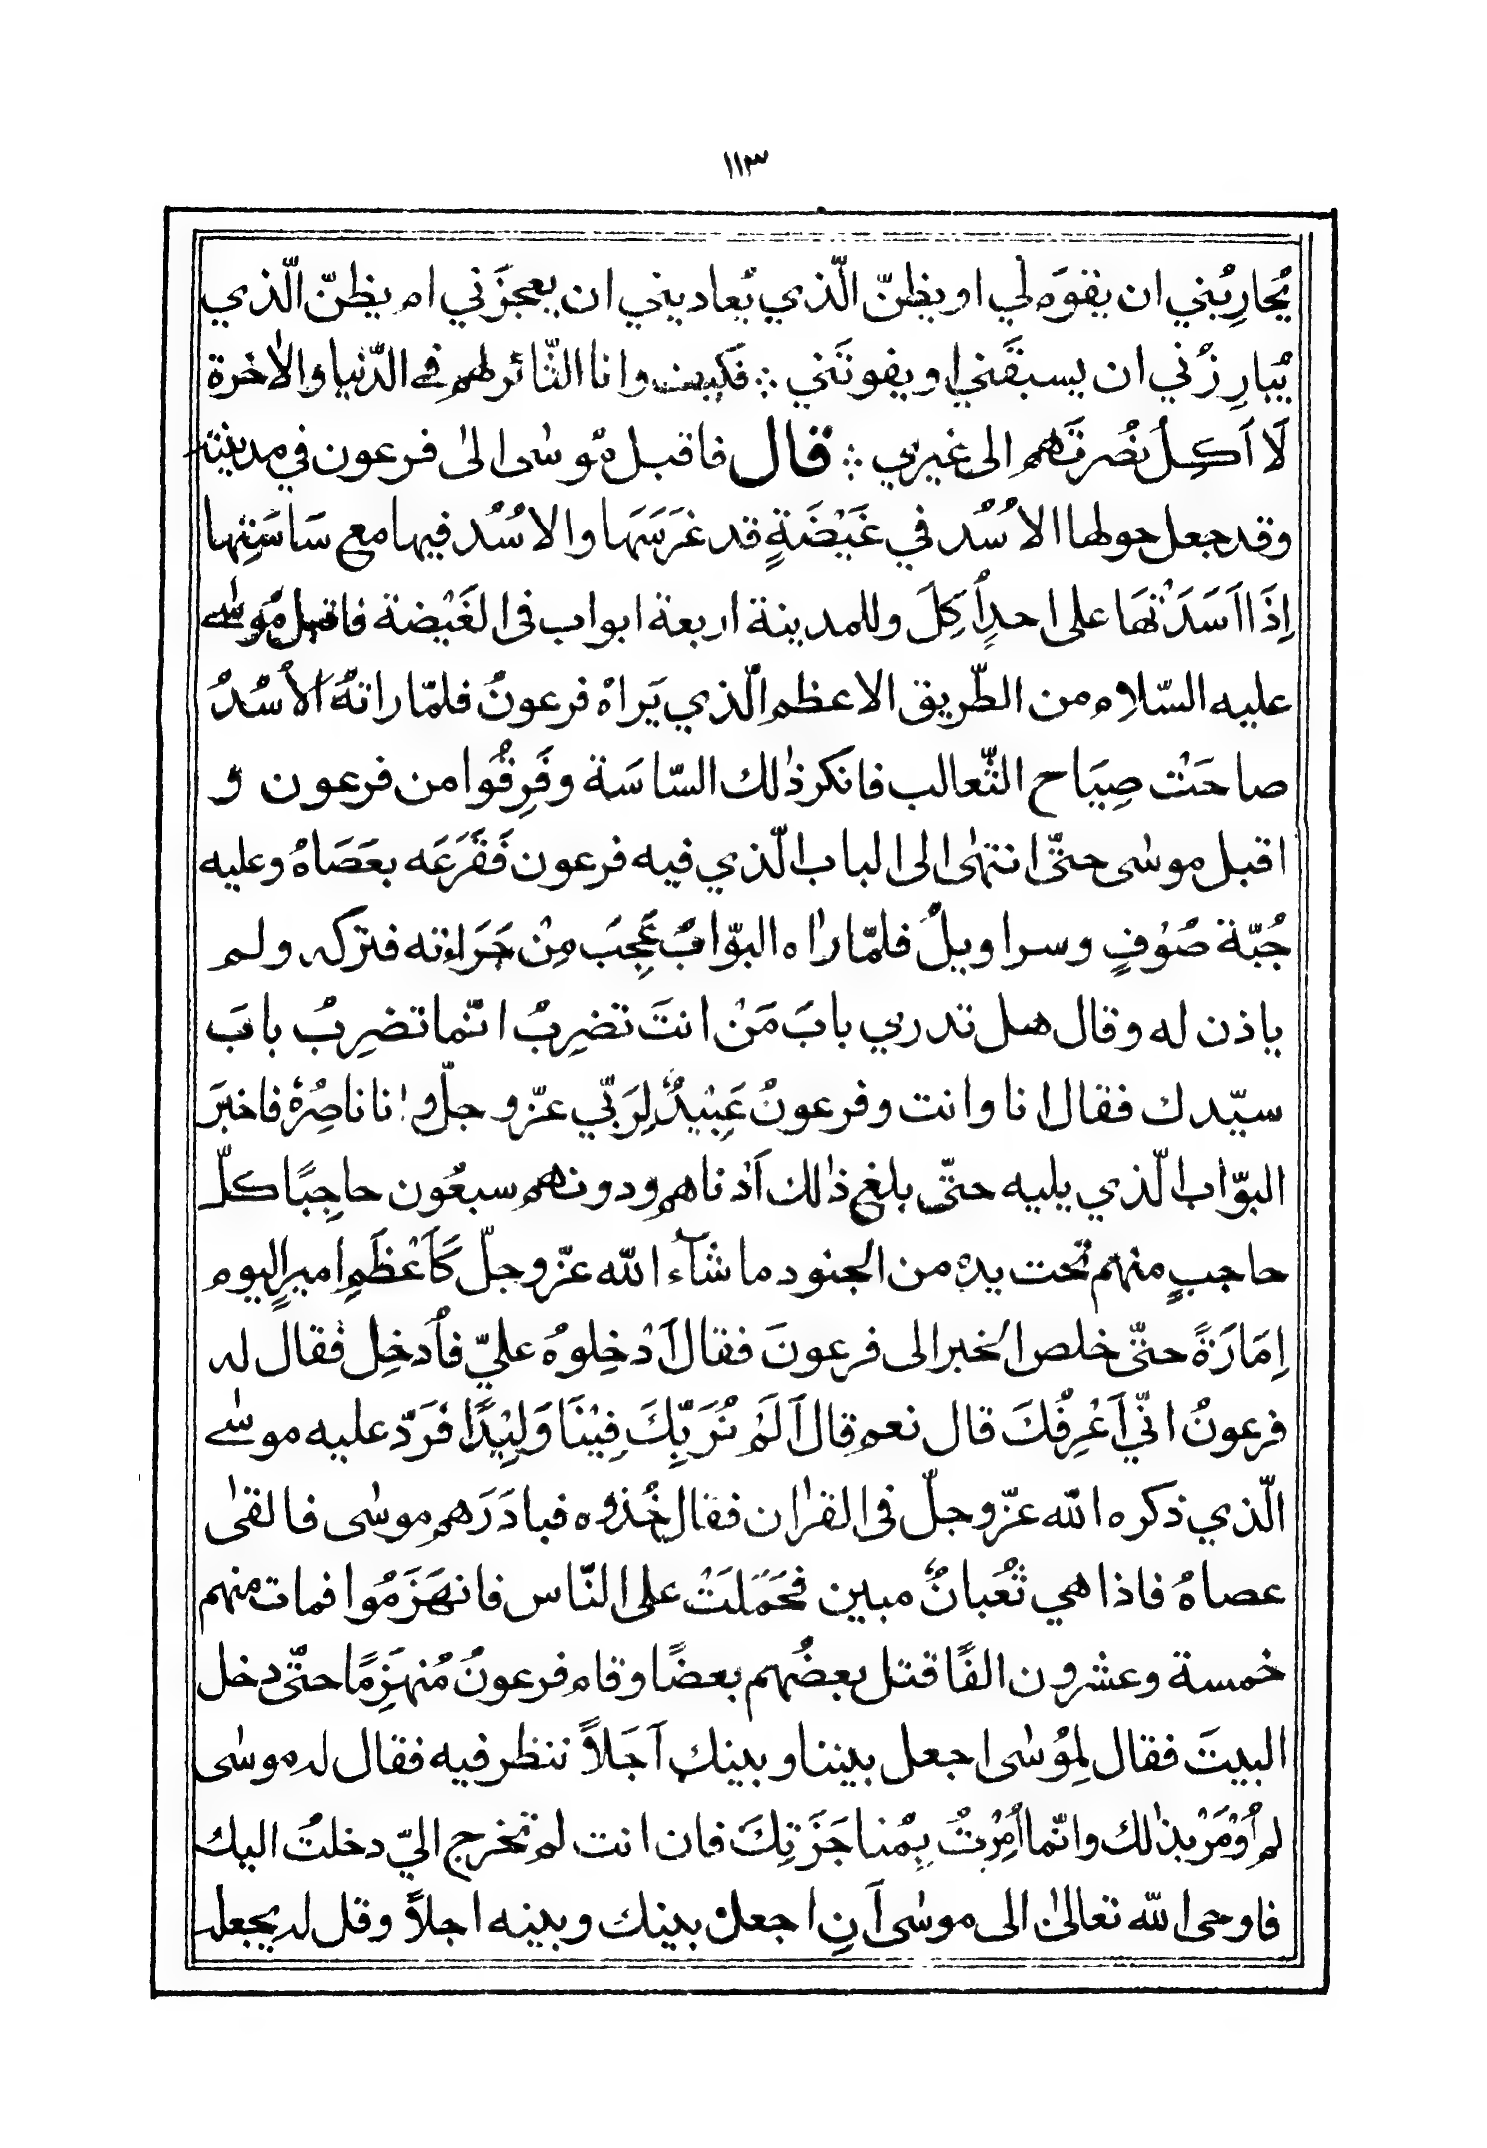 ١١٣
يُحارِبُني ان يقومَ لي او يظنّ الّذي يُعاديني ان يعجزَني ام يظنّ الّذي
يُبارِزُني ان يسبقَني او يفوتَني ∴ فكيف وانا الثّائر لهم في الدّنيا والاٰخرة
لَا اَكِلُ نُصرتَهم الى غيري ∴ قال فاقبل مُوسٰى الىٰ فرعون في مدينة
وقد جعل حولها الاُسُد في غَيْضَةٍ قد غَرَسَها والاُسُد فيها مع سَاسَتِها
اِذَا اَسَدَتْهَا على احدٍ اُكِلَ وللمدينة اربعة ابواب في الغَيْضة فاقبل مُوسٰے
عليه السّلام من الطّريق الاعظم الّذي يَراهُ فرعونُ فلمّا راتهُ الاُسُدُ
صاحَتْ صِيَاح الثّعالب فانكر ذٰلك السّاسَة وفَرِقُوا من فرعون و
اقبل موسٰى حتّى انتهٰى الى الباب الّذي فيه فرعون فَقَرَعَه بعَصَاهُ وعليه
جُبّة صُوْفٍ وسراويلُ فلمّا راٰه البوّابُ عَجِبَ مِنْ جَرَاءته فتركه ولم
ياذن له وقال هل تدري بابَ مَنْ انتَ تضرِبُ انّما تضرِبُ بابَ
سيّدك فقال انا وانت وفرعونُ عَبِيْدٌ لِرَبّي عزّوجلّ وانا ناصِرُهُ فاخبَرَ
البوّاب الّذي يليه حتّى بلغ ذٰلك اَدْناهم ودونهم سبعُون حاجِبًا كلّ
حاجبٍ منهم تحت يدهِ من الجنود ما شآء الله عزّوجلّ كَاَعْظَمِ اميرٍ اليوم
اِمَارَةً حتّى خلص الخبر الى فرعونَ فقال اَدْخِلوهُ عليّ فاُدخِل فقال له
فرعونُ انّي اَعْرِفُكَ قال نعم قال اَلَمْ نُرَبِّكَ فِيْنَا وَلِيْدًا فَرَدّ عليه موسٰے
الّذي ذكره الله عزّوجلّ في القراٰن فقال خُذوه فبادَرَهم موسٰى فالقىٰ
عصاهُ فاذا هي ثُعبانٌ مبين فحَمَلَتْ على النّاس فانهَزَمُوا فمات منهم
خمسة وعشرون الفًا قتل بعضُهم بعضًا وقام فرعونُ مُنهَزِمًا حتّى دخل
البيتَ فقال لِمُوسٰى اجعل بيننا وبينك اَجَلاً ننظر فيه فقال له موسٰى
لم اُوْمَرْ بذٰلك وانّما اُمِرْتُ بِمُناجَزَتِكَ فان انت لم تخرج اليّ دخلتُ اليك
فاوحى الله تعالىٰ الى موسٰى اَنِ اجعل بينك وبينه اجلاً وقل له يجعله